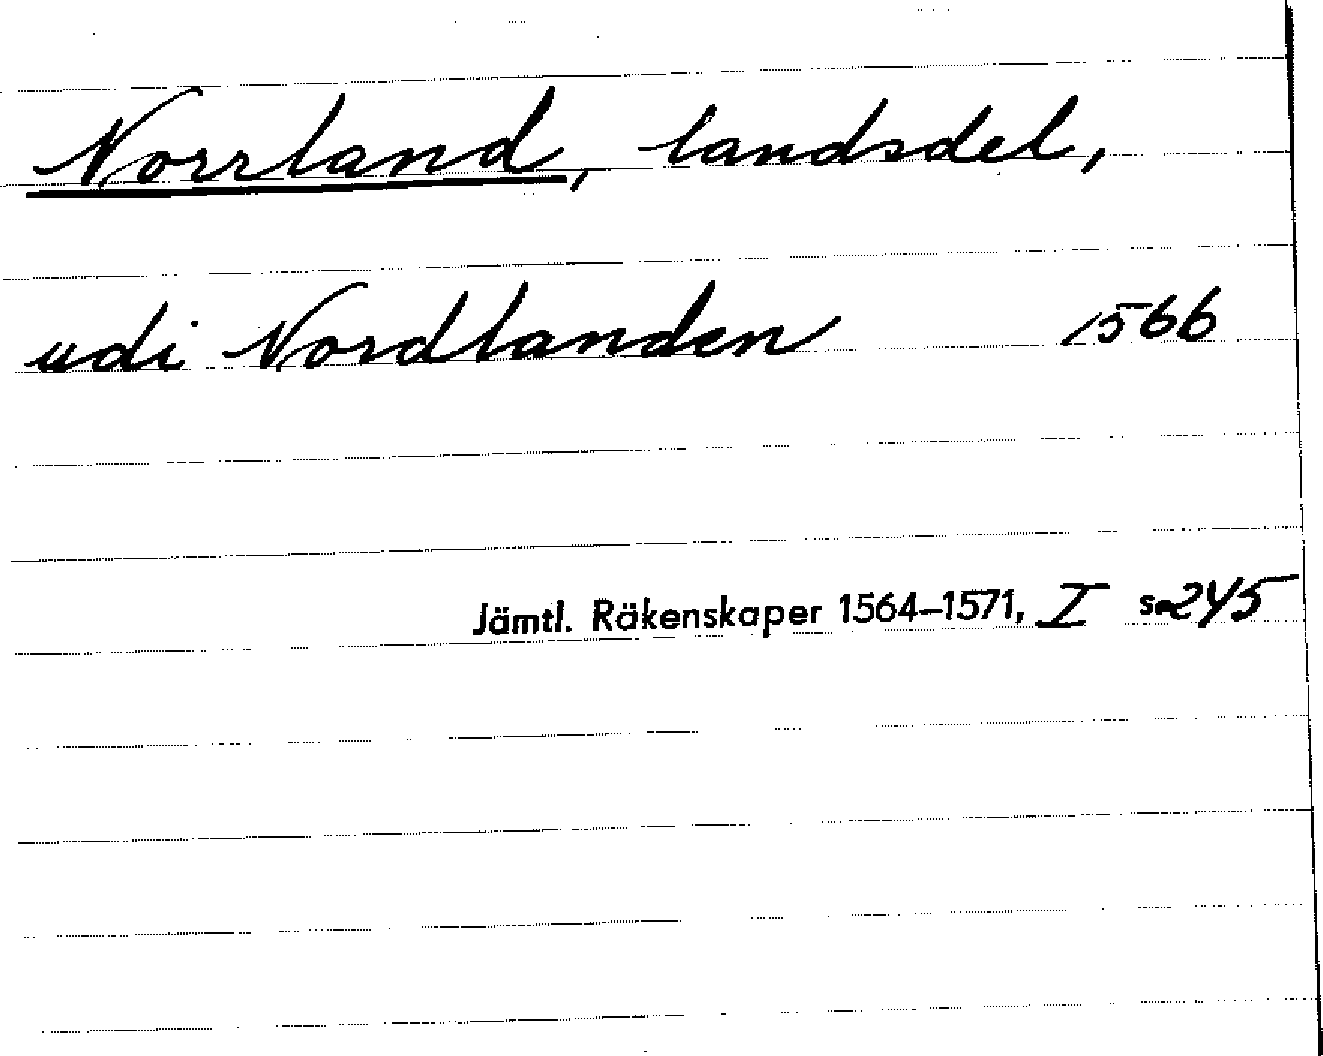 Norrland, landsdel,
udi Nordlanden 1566
Jämtl. Räkenskaper 1564–1571, I s. 245